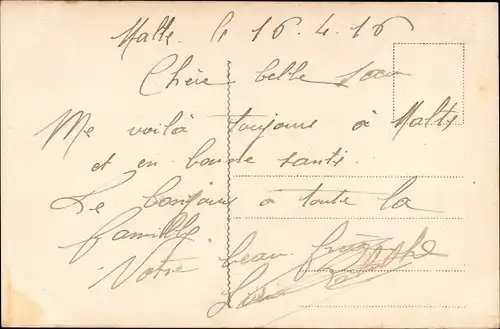 Malte. le 16. 4. 16
Chère belle Sœur
Me voilà toujours à Malte
et en bonne santé.
Le bonjour à toute la
famille
Votre beau frère